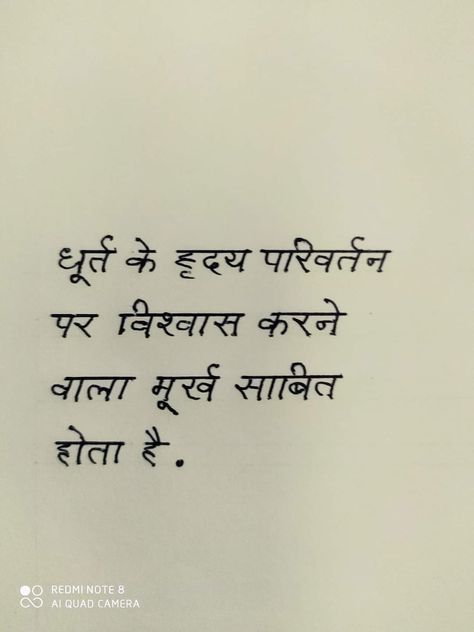 धूर्त के हृदय परिवर्तन
पर विश्वास करने
वाला मूर्ख साबित
होता है.
REDMI NOTE 8
AI QUAD CAMERA